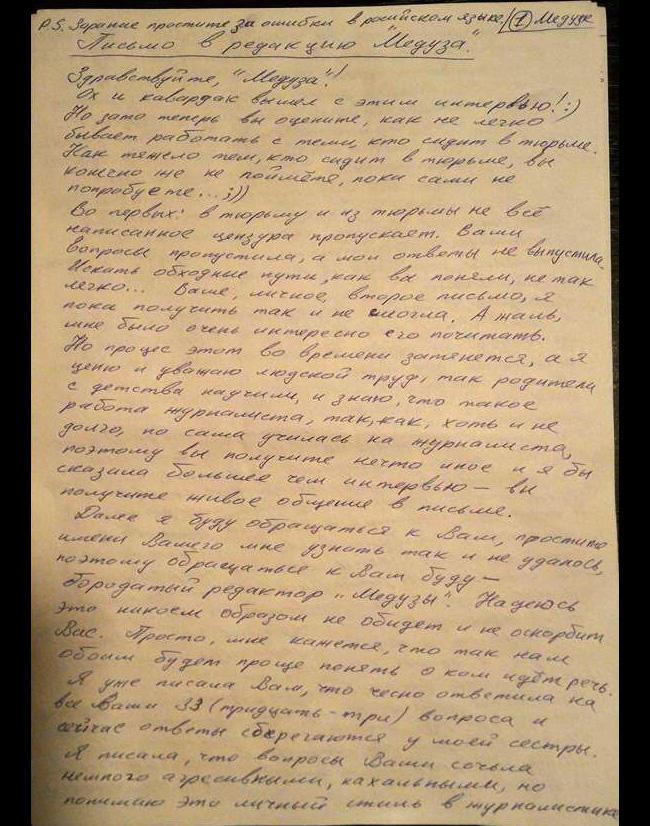 P.S. Зарание простите за ошибки в росийском языке / ① Медузе
Письмо в редакцию "Медуза".
Здравствуйте, "Медуза"!
Ох и кавардак вышел с этим интервью! :)
Но зато теперь вы оцените, как не легко
бывает работать с теми, кто сидит в тюрьме.
Как тяжело тем, кто сидит в тюрьме, вы
конечно же не поймёте, пока сами не
попробуете... ;))
Во первых: в тюрьму и из тюрьмы не всё
написанное цензура пропускает. Вами
вопросы пропустила, а мои ответы не выпустила.
Искать обходные пути, как вы поняли, не так
легко... Ваше, личное, второе письмо, я
пока получить так и не смогла. А жаль,
мне было очень интересно его почитать.
Но процес этот во времени затянется, а я
ценю и уважаю людской труд, так родители
с детства научили, и знаю, что такое
работа журналиста, так, как, хоть и не
долго, но сама училась на журналиста,
поэтому вы получите нечто иное и я бы
сказала большее чем интервью — вы
получите живое общение в письме.
Далее я буду обращаться к Вам, простите
имени Вашего мне узнать так и не удалось,
поэтому обращаться к Вам буду —
бородатый редактор "Медузы". Надеюсь
это никоем образом не обидет и не оскорбит
Вас. Просто, мне кажется, что так нам
обоим будет проще понять о ком идёт речь.
Я уже писала Вам, что чесно ответила на
все Ваши 33 (тридцать-три) вопроса и
сейчас ответы сберегаются у моей сестры.
Я писала, что вопросы Ваши сочла
немного агресивными, нахальными, но
понимаю это личный стиль в журналистике